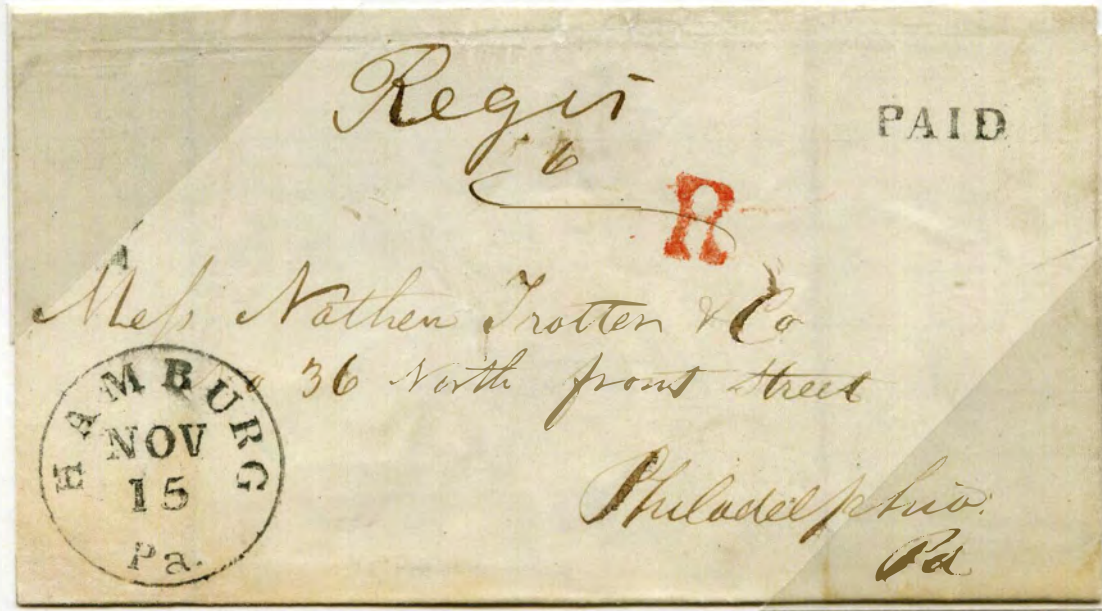 Regis
6
PAID
R
Mess Nathen Trotter & Co
No 36 North front Street
Philadelphia
Pa
HAMBURG
NOV
15
Pa.